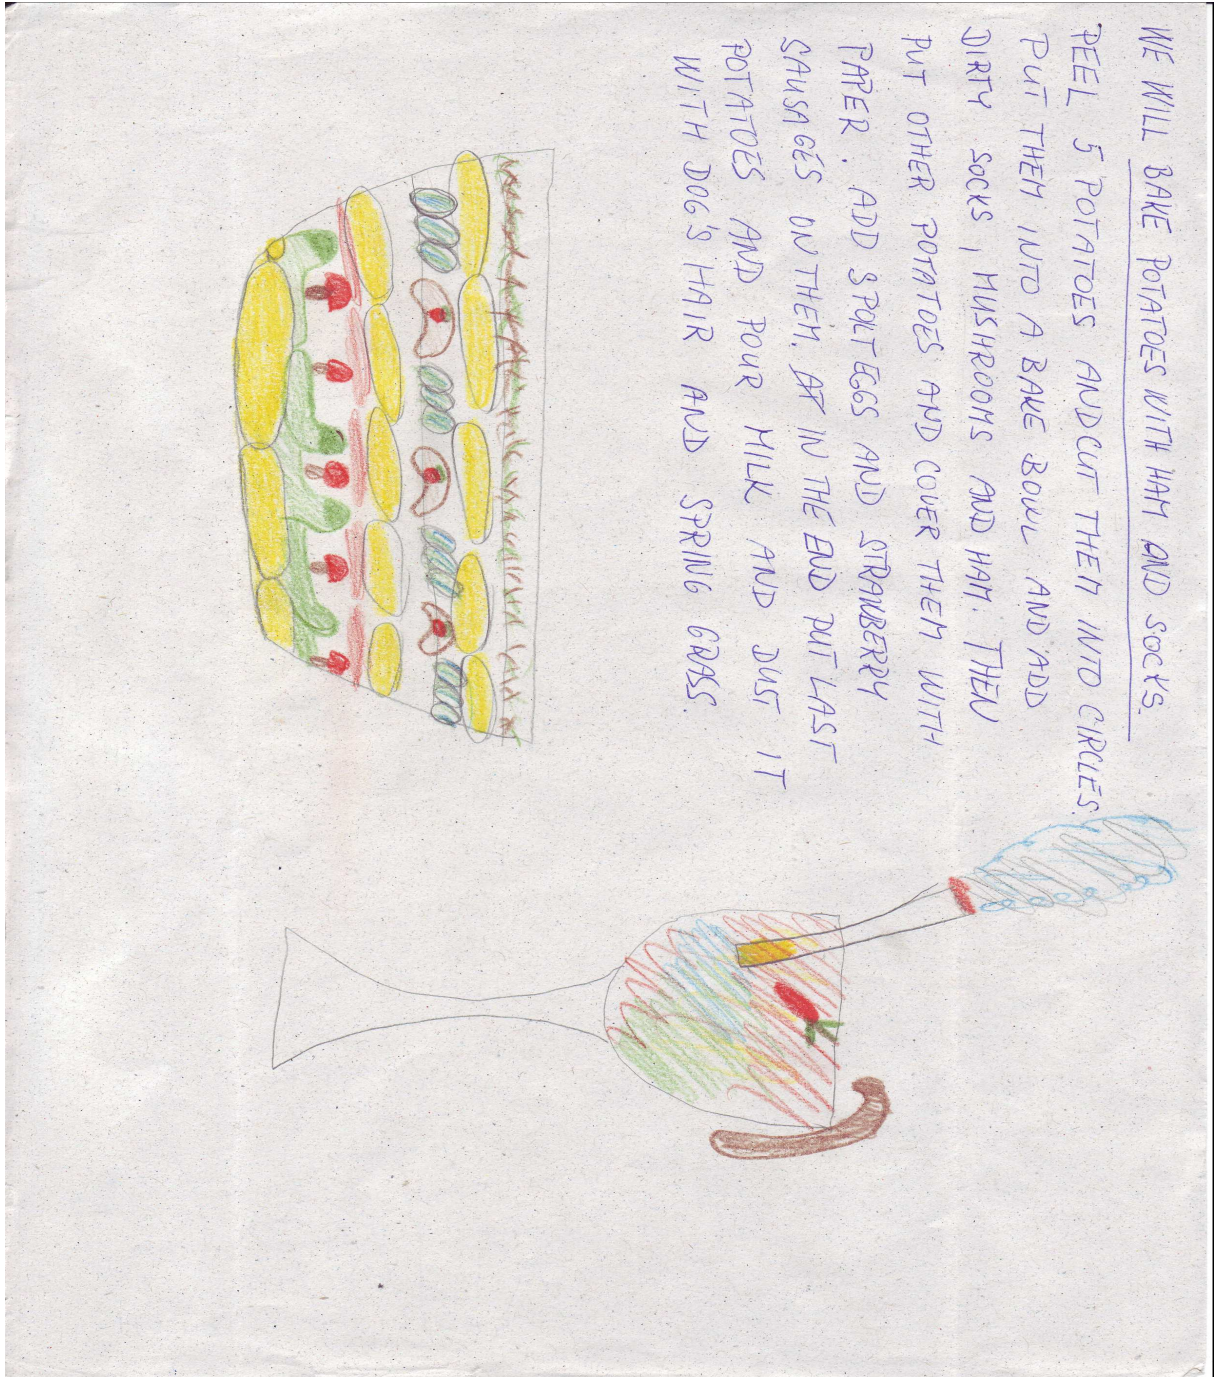 WE WILL BAKE POTATOES WITH HAM AND SOCKS.
PEEL 5 POTATOES AND CUT THEM INTO CIRCLES.
PUT THEM INTO A BAKE BOWL AND ADD
DIRTY SOCKS, MUSHROOMS AND HAM. THEN
PUT OTHER POTATOES AND COVER THEM WITH
PAPER. ADD SPOILT EGGS AND STRAWBERRY
SAUSAGES ON THEM. AT IN THE END PUT LAST
POTATOES AND POUR MILK AND DUST IT
WITH DOG'S HAIR AND SPRING GRASS.